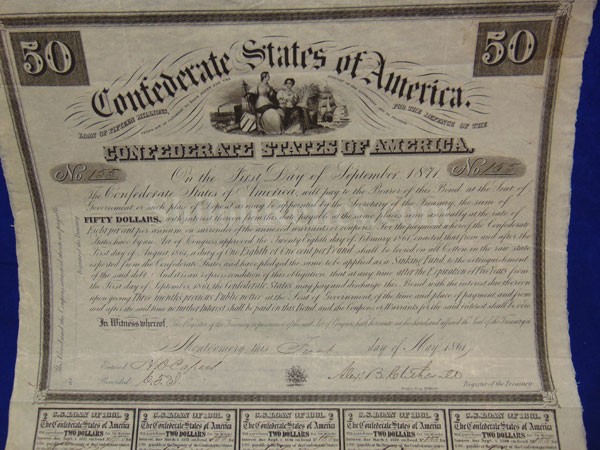 50
50
Confederate States of America.
LOAN OF FIFTEEN MILLIONS,
FOR THE DEFENCE OF THE
CONFEDERATE STATES OF AMERICA.
No 155
No 155
On the First Day of September 1871
The Confederate States of America, will pay to the Bearer of this Bond at the Seat of
Government or such place of Deposit as may be appointed by the Secretary of the Treasury, the sum of
FIFTY DOLLARS, with interest thereon from this date payable at the same places semi annually at the rate of
Eight per cent per annum on surrender of the annexed warrants or coupons. For the payment whereof the Confederate
States have by an Act of Congress approved the Twenty Eighth day of February 1861, enacted that from and after the
First day of August 1861, a duty of One Eighth of One cent per Pound, shall be levied on all Cotton in the raw state
exported from the Confederate States and have pledged the same to be applied as a Sinking Fund to the extinguishment
of the said debt. And it is an express condition of this obligation, that at any time after the Expiration of Five Years from
the First day of September 1861, the Confederate States may pay and discharge this Bond with the interest due thereon
upon giving Three months previous Public notice at the Seat of Government, of the time and place of payment, and from
and after the said time no further Interest shall be paid on this Bond, and the Coupons or Warrants for the said interest shall be void.
In Witness whereof, The Register of the Treasury
Montgomery this day of May 1861
Entered
Recorded
Alex. B. Clitherall
Register of the Treasury
2 C.S. LOAN OF 1861. 2
2 C.S. LOAN OF 1861. 2
2 C.S. LOAN OF 1861. 2
2 C.S. LOAN OF 1861. 2
2 C.S. LOAN OF 1861. 2
The Confederate States of America
The Confederate States of America
The Confederate States of America
The Confederate States of America
The Confederate States of America
TWO DOLLARS
TWO DOLLARS
TWO DOLLARS
TWO DOLLARS
TWO DOLLARS